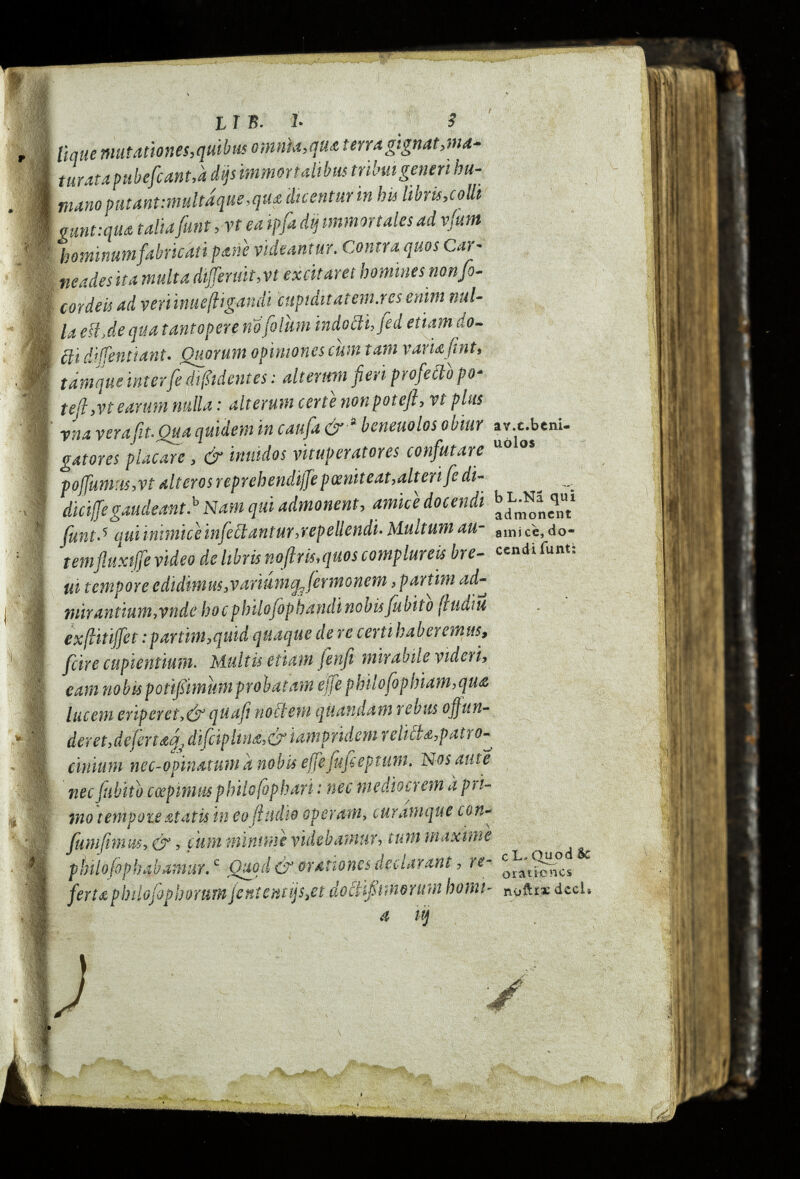 LIB. I. 3
lique mutationes,quibus omnia,quæ terra gignat,ma-
turata pubescant,à dijs immortalibus tribui generi hu-
mano putant:multáque,quæ dicentur in his libris,colli
gunt:quæ talia sunt, vt ea ipsa dij immortales ad vsum
hominum fabricati pæne videantur. Contra quos Car-
neades ita multa disseruit,vt excitaret homines non so-
cordeis ad veri inuestigandi cupiditatem.res enim nul-
la est,de qua tantopere nõ solùm indocti, sed etiam do-
cti dissentiant. Quorum opiniones cùm tam variæ sint,
támque inter se dißidentes: alterum fieri profectò po-
test,vt earum nulla: alterum certè non potest, vt plus
vna vera sit. Qua quidem in causa & ª beneuolos obiur
av.c.beni-
uolos
gatores placare, & inuidos vituperatores confutare
possumus,vt alteros reprehendisse pœniteat,alteri se di-
dicisse gaudeant.ᵇ Nam qui admonent, amicè docendi
b L.Nã qui
admonent
amicè, do-
cendi sunt:
sunt.⁵ qui inimicè insectantur,repellendi. Multum au-
tem fluxisse video de libris nostris,quos complureis bre-
ui tempore edidimus,variúmq; sermonem, partim ad-
mirantium,vnde hoc philosophandi nobis subitò studiũ
exstitisset: partim,quid quaque de re certi haberemus,
scire cupientium. Multis etiam sensi mirabile videri,
eam nobis potißimùm probatam esse philosophiam,quæ
lucem eriperet,& quasi noctem quandam rebus offun-
deret,desertæq; disciplinæ,& iampridem relictæ,patro-
cinium nec-opinatum à nobis esse susceptum. Nos autẽ
nec subitò cœpimus philosophari: nec mediocrem à pri-
mo tempore ætatis in eo studio operam, curámque con-
sumsimus, &, cùm minimè videbamur, tum maximè
philosophabamur.ᶜ Quod & orationes declarant, re-
c L. Quod &
orationes
nostræ decl.
fertæ philosophorum sententijs,et doctißimorum homi-
a iij